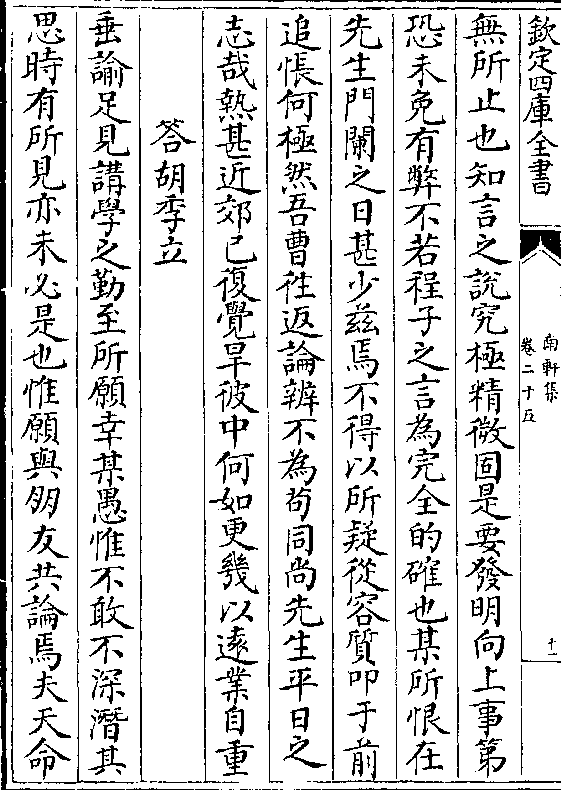 欽定四庫全書
南軒集
卷二十五
十二
無所止也知言之說究極精微固是要發明向上事第
恐未免有弊不若程子之言為完全的確也某所恨在
先生門闌之日甚少茲焉不得以所疑從容質叩于前
追悵何極然吾曹往返論辨不為茍同尚先生平日之
志哉熱甚近郊已復覺旱彼中何如更幾以逺業自重
答胡季立
垂諭足見講學之勤至所願幸某愚惟不敢不深潛其
思時有所見亦未必是也惟願與朋友共論焉夫天命